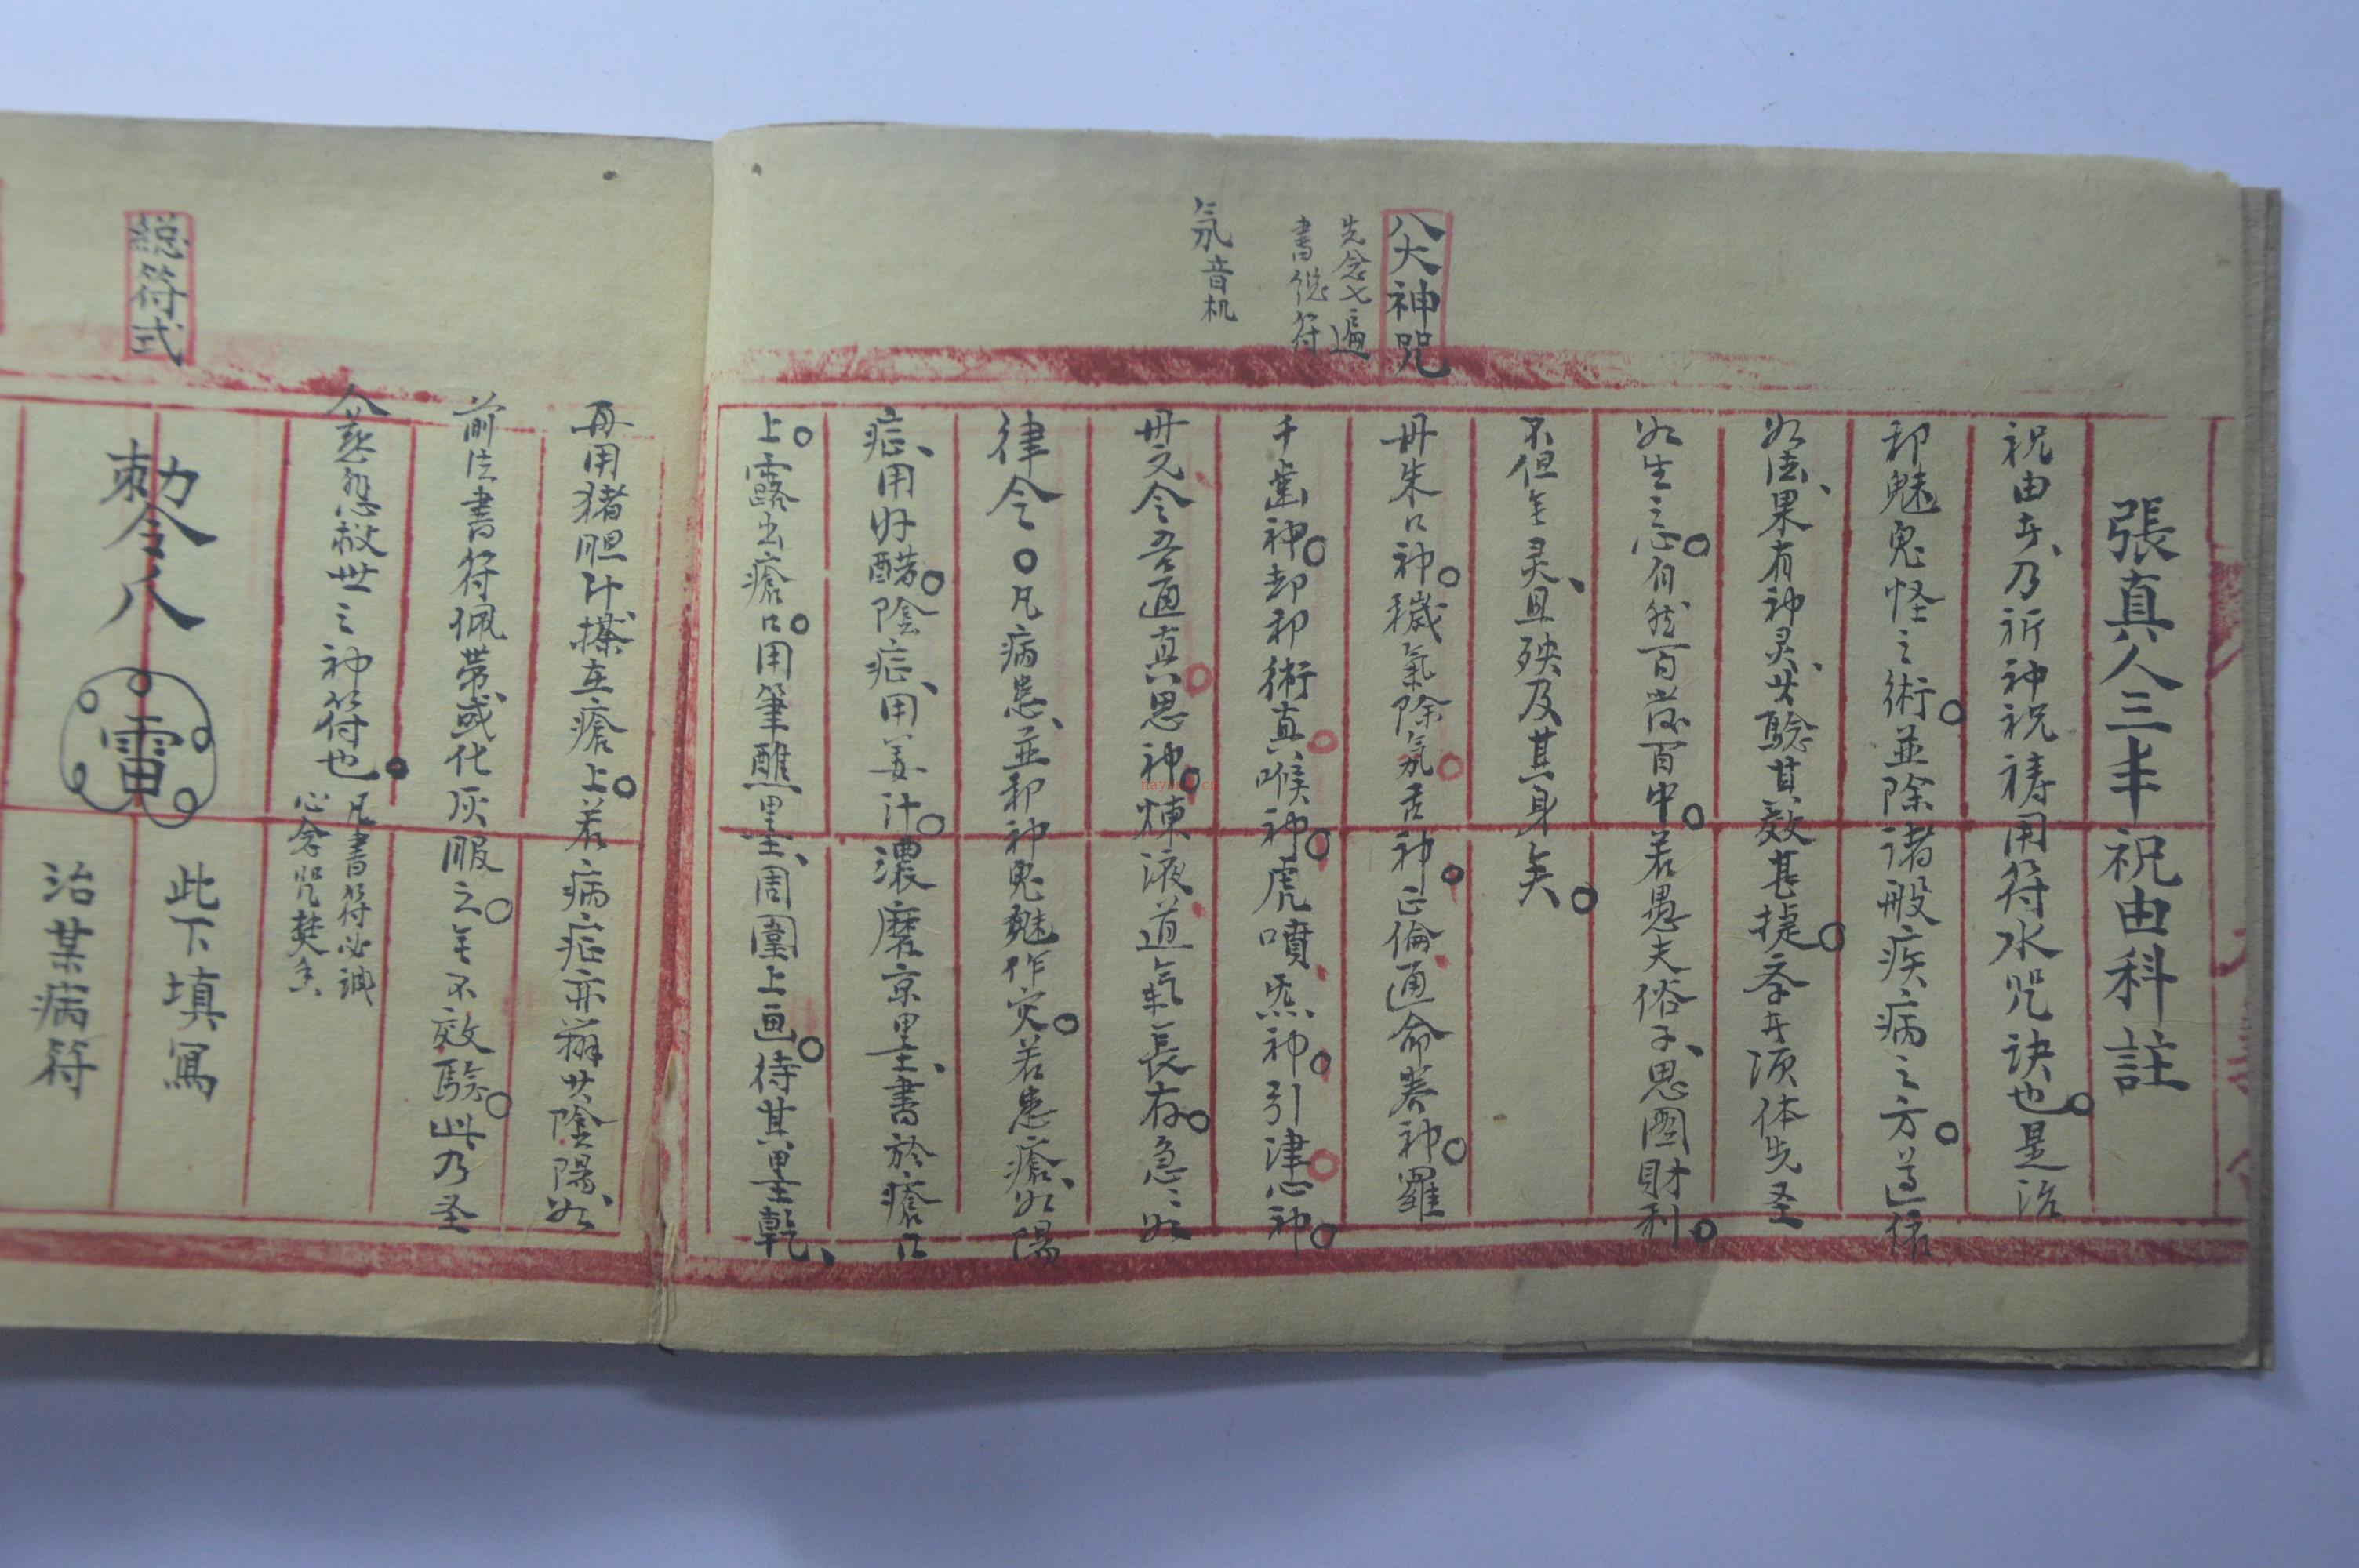 張真人三丰祝由科註
祝由者、乃祈神祝禱用符水咒訣也。是治
邪魅鬼怪之術。並除諸般疾病之方。遵依
如法、果有神灵、共驗其效甚捷。斈者須体先圣
如生之志。自然百發百中。若愚夫俗子、思圖財利。
不但無灵、且殃及其身矣。
八大神咒
先念七遍
書總符
氛音机
丹朱口神。穢氣除氛。舌神。正倫、通命養神。羅
千齒神。却邪術真。喉神。虎噴、炁神。引津。心神。
丹元令吾通真。思神。煉液、道氣長存。急ミ如
律令。凡病患、並邪神鬼魅作灾。若患瘡、如陽
症、用好醋。陰症、用姜汁。濃磨京墨、書於瘡口
上。露出瘡口。用筆醮墨、周圍上画。待其墨乾、
再用猪胆汁搽在瘡上。若病症亦辨其陰陽、如
前法書符佩带、或化灰服之。無不效驗。此乃圣
人慈悲救世之神符也。
凡書符必誠
心念咒焚香
總符式
勅令八
雷
此下填寫
治某病符